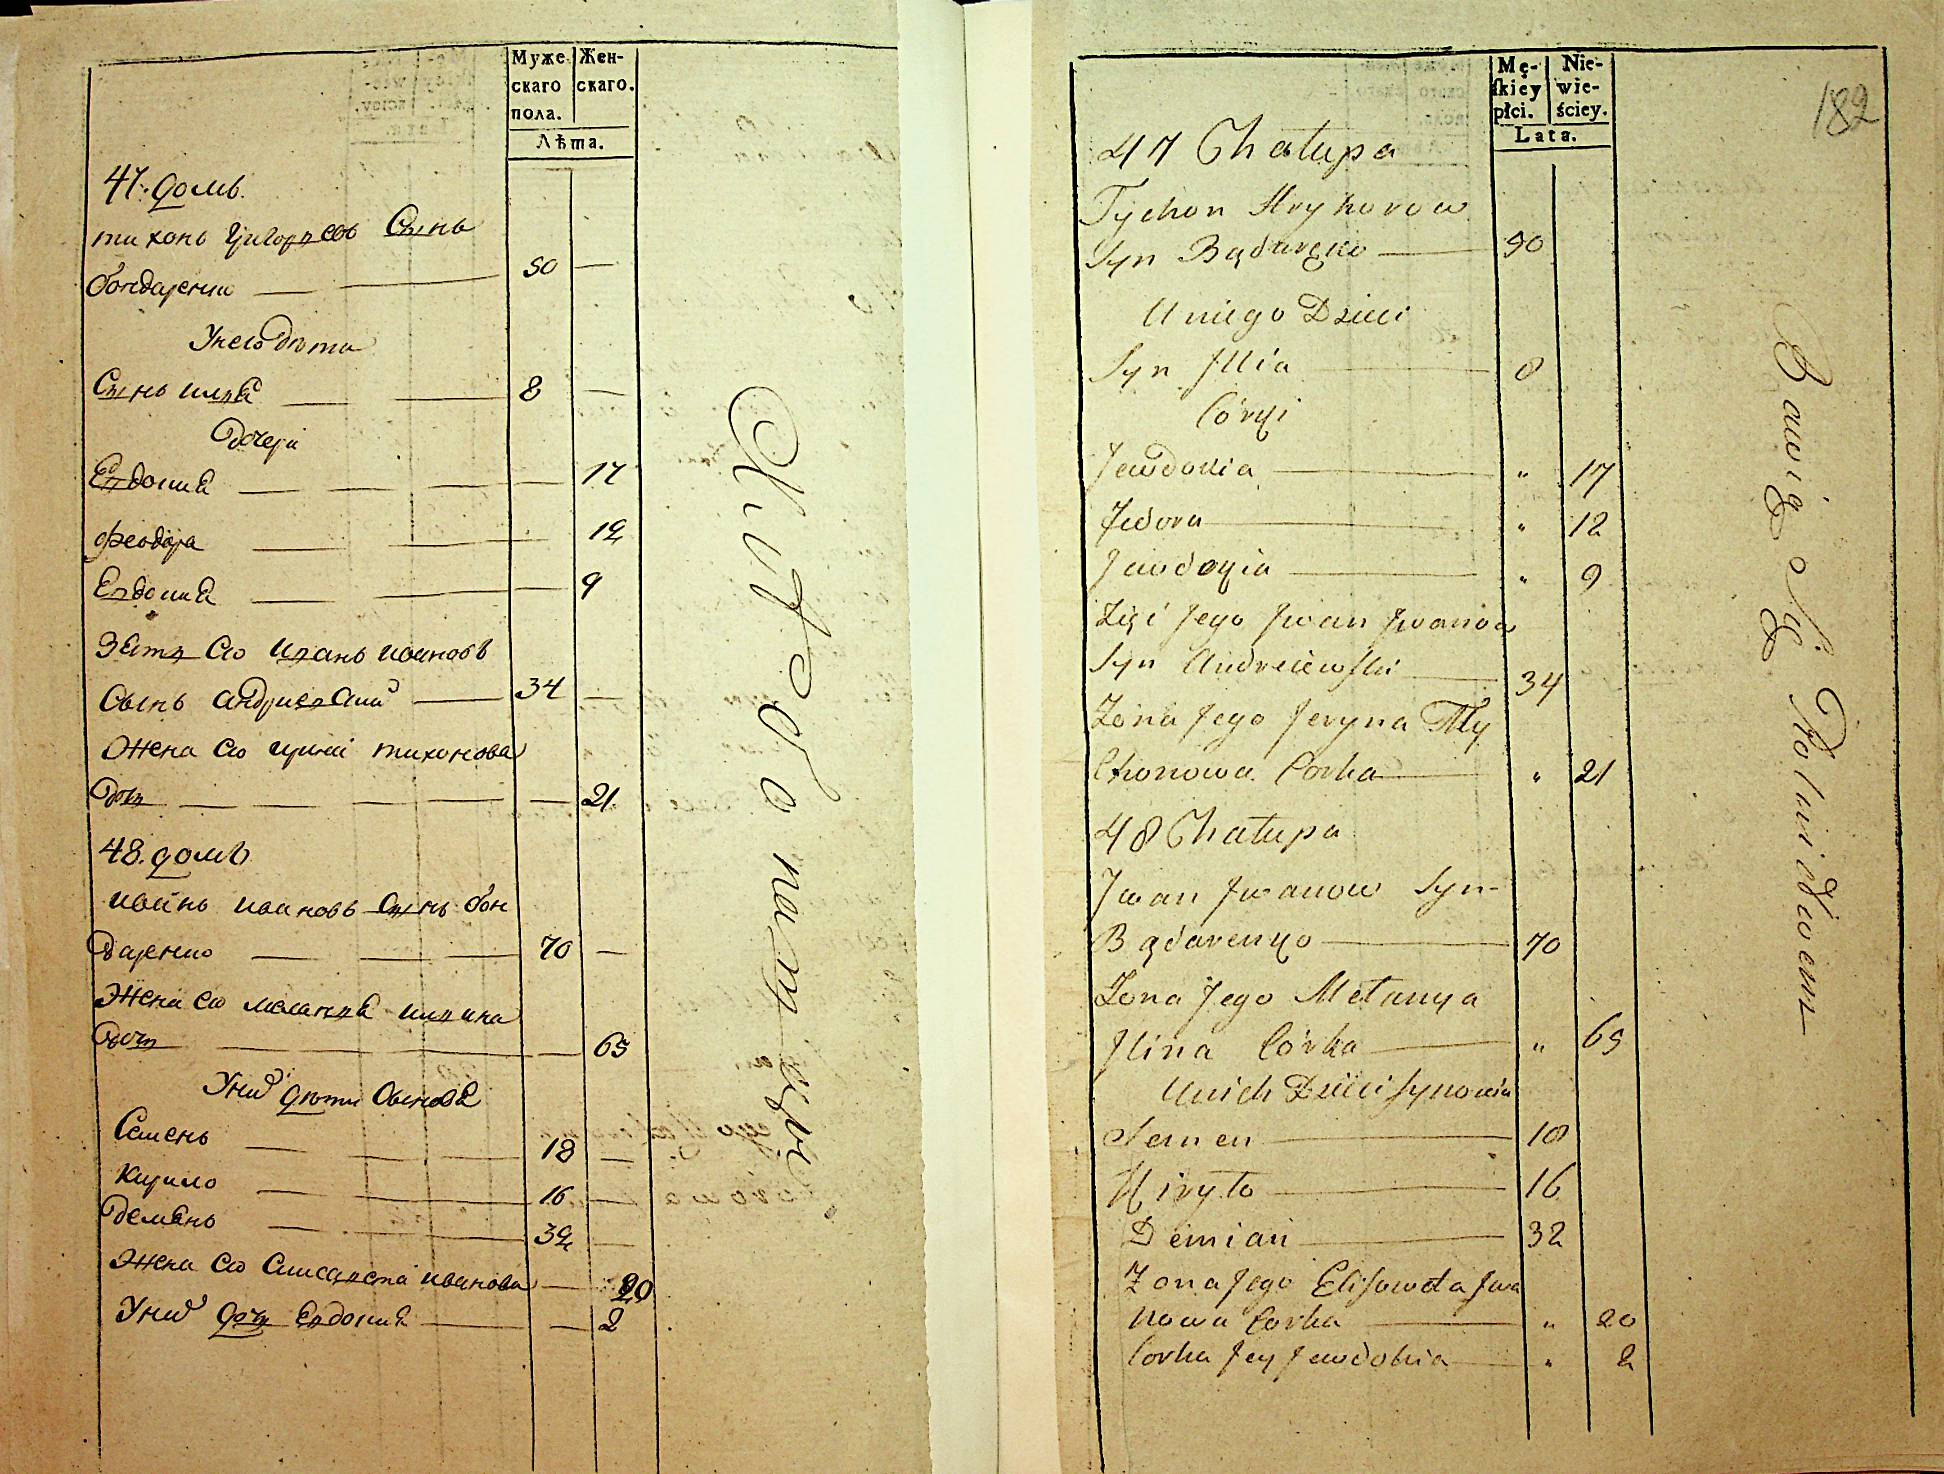 Муже
скаго
пола.
Жен-
скаго.
Лѣта.
47. домъ
тихонъ григорьевъ Сынъ
бондаренко — 50 —
Унего дѣти
Сынъ илья — 8 —
дочери
Евдокия — 17
феодора — 12
Евдокия — 9
Зять его иванъ ивановъ
Сынъ андриевский — 34 —
Жена его ирина тихонова
дочь — 21
48. домъ
иванъ ивановъ сынъ бон
даренко — 70 —
Жена его мелания ильина
дочь — 65
Уних дѣти Сыновья
Семенъ — 18 —
Кирило — 16 —
демянъ — 32 —
Жена его Елисавета иванова — 20
Уних дочь Евдокия — 2
Mę-
skiey
płci.
Nie-
wie-
ściey.
Lata.
182
47 Chałupa
Tychon Hryhorow
Syn Bądaręko — 50
Uniego Dzieci
Syn Illia — 8
Córki
Jewdokia — " 17
Fedora — " 12
Jewdokia — " 9
Zięć Jego Jwan Jwanow
Syn Andreiewski — 34
Zona Jego Jeryna Ty
Chonowa Corka — " 21
48 Chałupa
Jwan Jwanow Syn-
Bądarenko — 70
Zona Jego Mełanya
Jlina Córka — " 65
Unich Dzieci Synowie
Semen — 18
Kiryło — 16
Demian — 32
Zona Jego Elisaweta Jwa
nowa Corka — " 20
Corka Jey Jewdokia — " 2
Bawią Się Rolnictwem